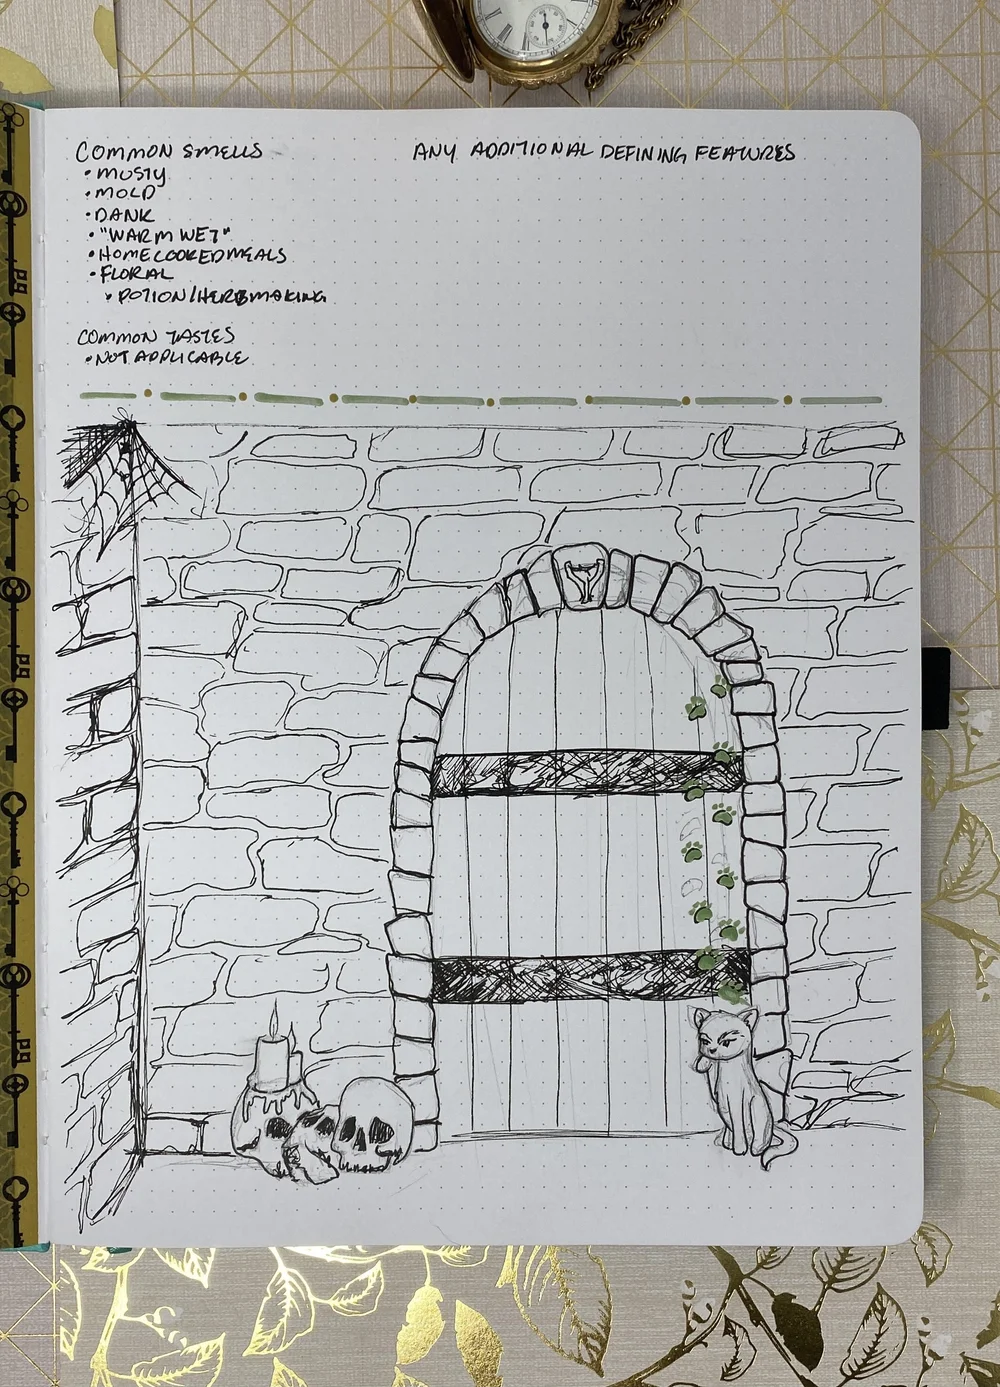 COMMON SMELLS
• MUSTY
• MOLD
• DANK
• "WARM WET"
• HOMECOOKED MEALS
• FLORAL
• POTION/HERB MAKING
COMMON TASTES
• NOT APPLICABLE
ANY ADDITIONAL DEFINING FEATURES